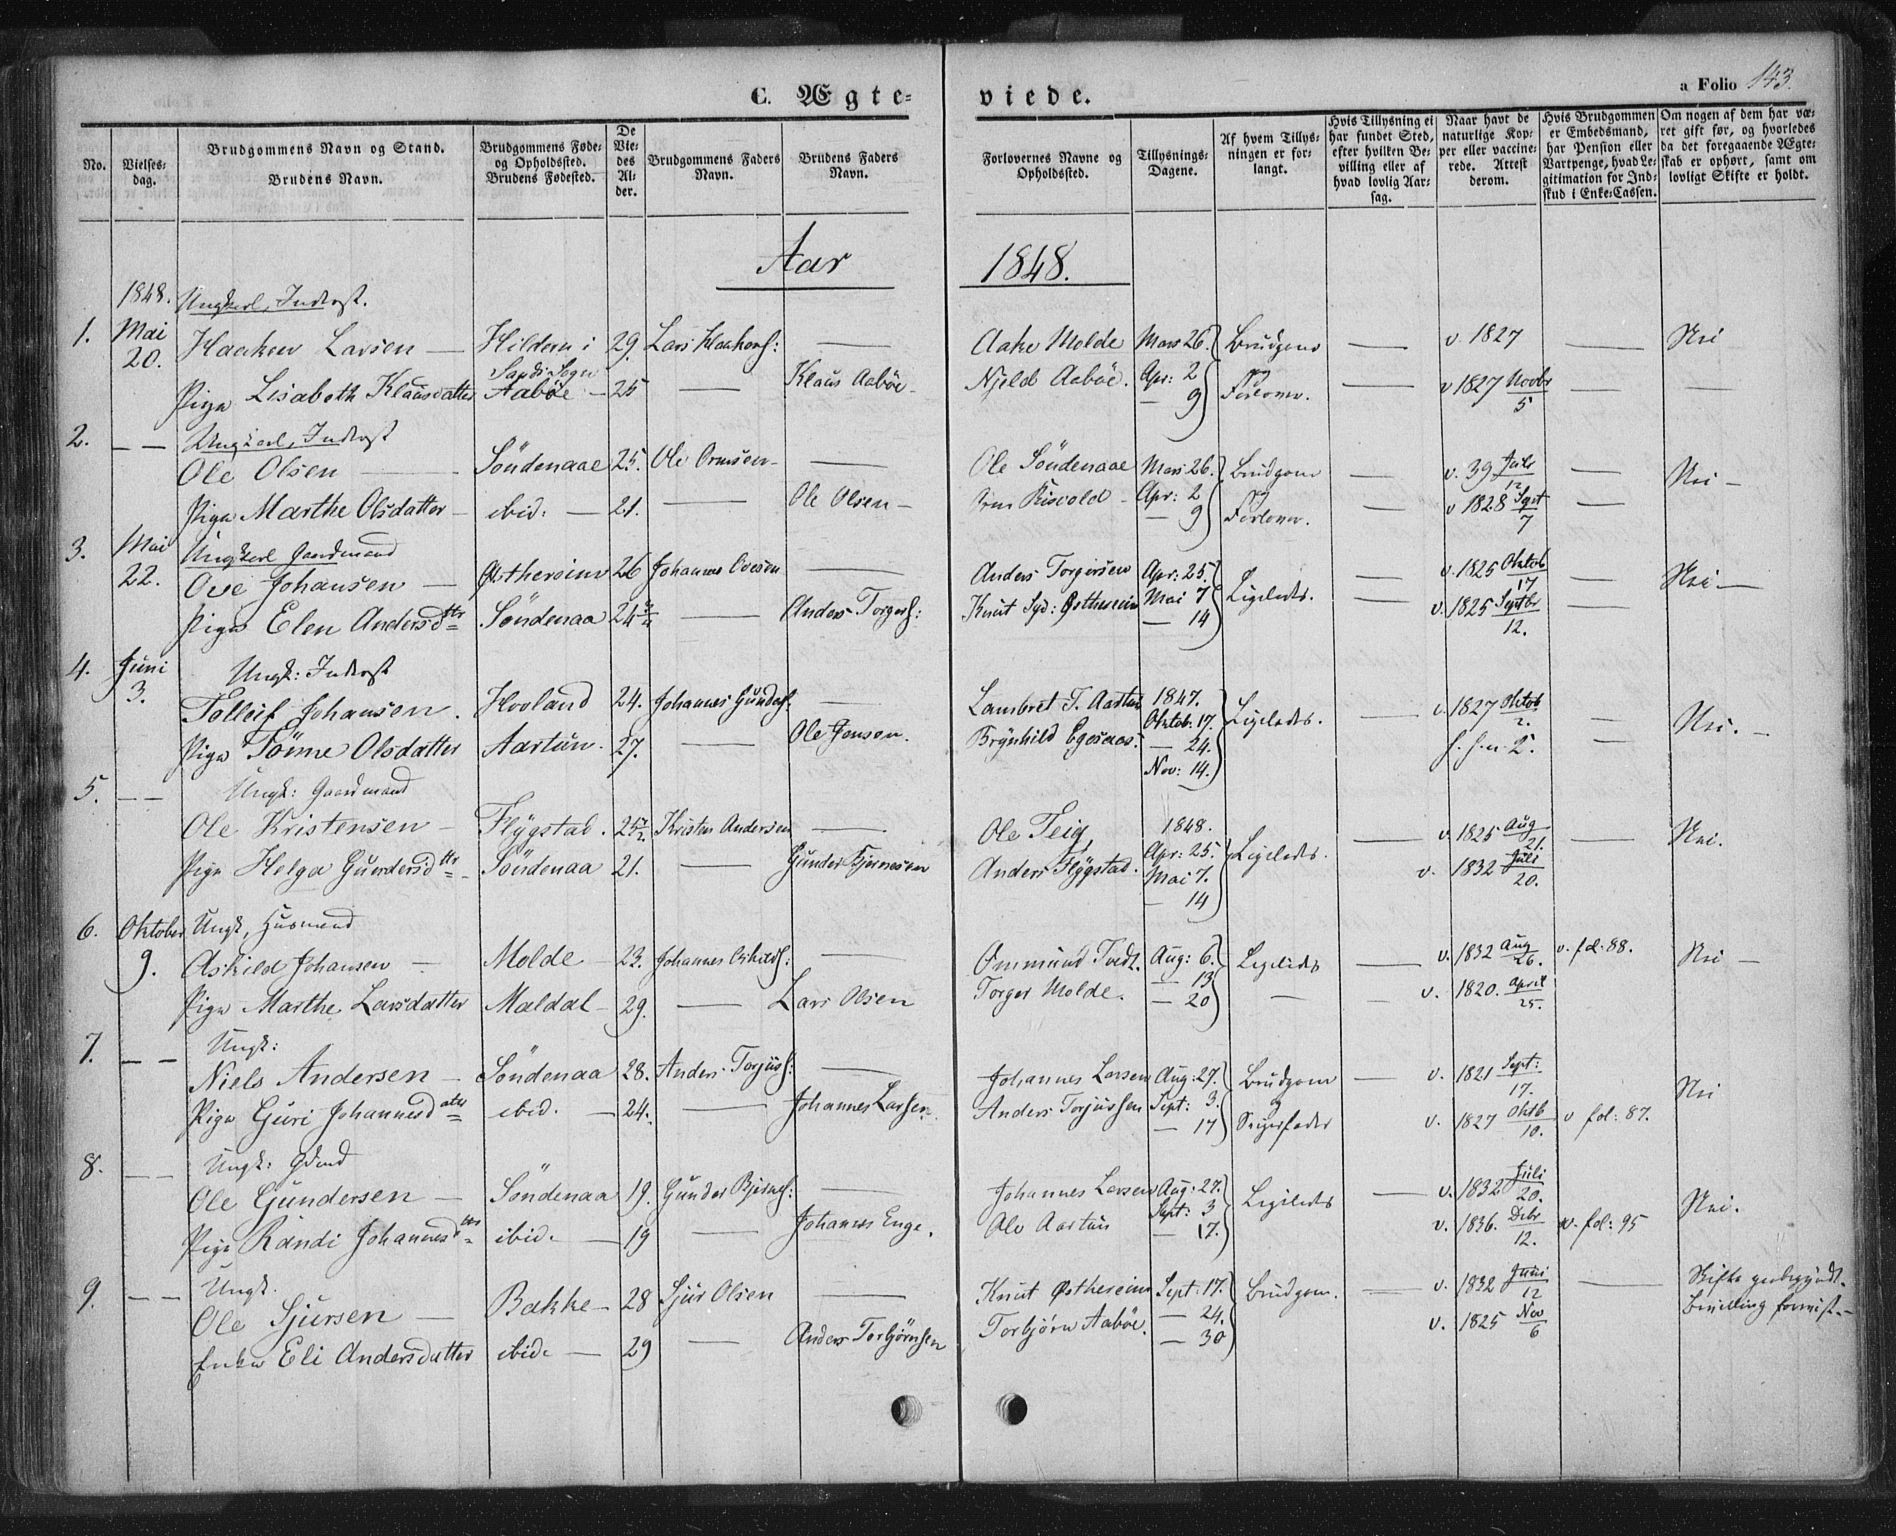 C. Ægte-
viede.
a Folio 143.
No.
Vielses-
dag.
Brudgommens Navn og Stand.
Brudens Navn.
Brudgommens Føde-
og Opholdssted.
Brudens Fødested.
De
Vie-
des
Al-
der.
Brudgommens Faders
Navn.
Brudens Faders
Navn.
Forlovernes Navne og
Opholdssted.
Tillysnings-
Dagene.
Af hvem Tillys-
ningen er for-
langt.
Hvis Tillysning ei
har fundet Sted,
efter hvilken Be-
villing eller af
hvad lovlig Aar-
sag.
Naar havt de
naturlige Kop-
per eller vaccine-
rede. Attest
derom.
Hvis Brudgommen
er Embedsmand,
har Pension eller
Vartpenge, hvad Le-
gitimation for Ind-
skud i Enke-Cassen.
Om nogen af dem har væ-
ret gift før, og hvorledes
da det foregaaende Ægte-
skab er ophørt, samt om
lovligt Skifte er holdt.
Aar 1848.
1848. Ungkarl, Inderst.
1. Mai 20. Haaken Larsen — Hilderen i Sands Sogn 29. Lars Haakons: — Aake Molde Mars 26. Brudgom — v. 1827 Nei
Pige Lisabeth Klausdatter Aabøe — 25 — Klaus Aabøe — Njeld Aabøe. Apr: 2 — 9 og Forlover. — v 1827 Novbr 5 — —
2. — — Ungkarl, Inderst
Ole Olsen — Söndenaae 25. Ole Ormsen — — Ole Söndenaae Mars 26. Brudgom — v. 39 Juli 12 — Nei —
Pige Marthe Olsdatter — ibid. — 21. — Ole Olsen — Riisvold — Apr: 2 — 9 og Forlover. — v 1828 Sept 7 —
3. Mai 22. Ungkarl Gaardmand
Ove Johansen — Østhereim 26 Johannes Ovesen — Anders Torgersen Apr: 25. Ligeledes. — v. 1825 Oktob 17 — Nei —
Pige Elen Andersdtr Söndenaa 24 — Anders Torgers: Knut Sjo: Østhereim Mai 7 — 14 — v. 1825 Septbr 12. —
4. Juni 3. Ungk: Inderst
Tolleif Johansen. Hovland 24. Johannes Gunders: — Lambret T. Aartun 1847. Oktob. 17. Ligeledes. — v. 1827 Oktob 2. — Nei. —
Pige Tönne Olsdatter Aartun. 27. — Ole Jensen. Brynhild Egesaas: — 24. Nov: 14. —
5. — — Ungk: Gaardmand
Ole Kristensen — Flygstad. 25½ Kristen Andersen — Ole Teig, 1848. Apr: 25. Ligeledes. — v. 1825 Aug 21. — Nei.
Pige Helga Gundersdtr — Söndenaa 21. — Gunder Bjørnesen Anders Flygstad. Mai 7. — 14 v. 1832 Juli 20.
6. Oktober 9. Ungk, Husmand
Askild Johansen — Molde — 23. Johannes Askilds: — Ommund Tvedt. Aug: 6. Ligeledes — v. 1832 Aug 26. v. fol: 88. Nei —
Pige Marthe Larsdatter Maldal — 29. — Lars Olsen Torger Molde. — 13 — 20 — — v. 1820. April 25.
7. — — Ungk:
Niels Andersen — Söndenaa 28. Anders Torjus: — Johannes Larsen Aug: 27. Brudgom — v. 1821 Sept: 17. Nei
Pige Guri Johannesdatter ibid. — 24. — Johannes Larsen. Anders Torjussen Sept: 3. — 17 og Svigerfader v. 1827 Oktb 10. v fol: 87.
8. — — Ungk: Gdmd
Ole Gundersen — Söndenaa 19. Gunder Bjørnes: — Johannes Larsen Aug: 27. Ligeledes — v. 1832 Juli 20. Nei.
Pige Randi Johannesdtr ibid. — 19 — Johannes Enge. Ole Aartun Sept: 3 — 17. v. 1836. Debr 12. v. fol: 95
9. — — Ungk.
Ole Sjursen — Bakke — 28 Sjur Olsen — Knut Østhereim Sept: 17. Brudgom. — v. 1832 Juni 12 — Skifte paabegyndt.
Enke Eli Andersdatter ibid. — 29 — Anders Torbjørnsen Torbjørn Aabøe. — 24. — 30 v. 1825 Nov 6 Bevilling forevist. —